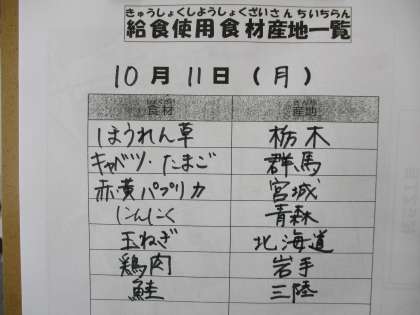 きゅうしょくしようしょくざいさんちいちらん
給食使用食材産地一覧
10月11日(月)
食材 産地
ほうれん草 栃木
キャベツ・たまご 群馬
赤・黄パプリカ 宮城
にんにく 青森
玉ねぎ 北海道
鶏肉 岩手
鮭 三陸